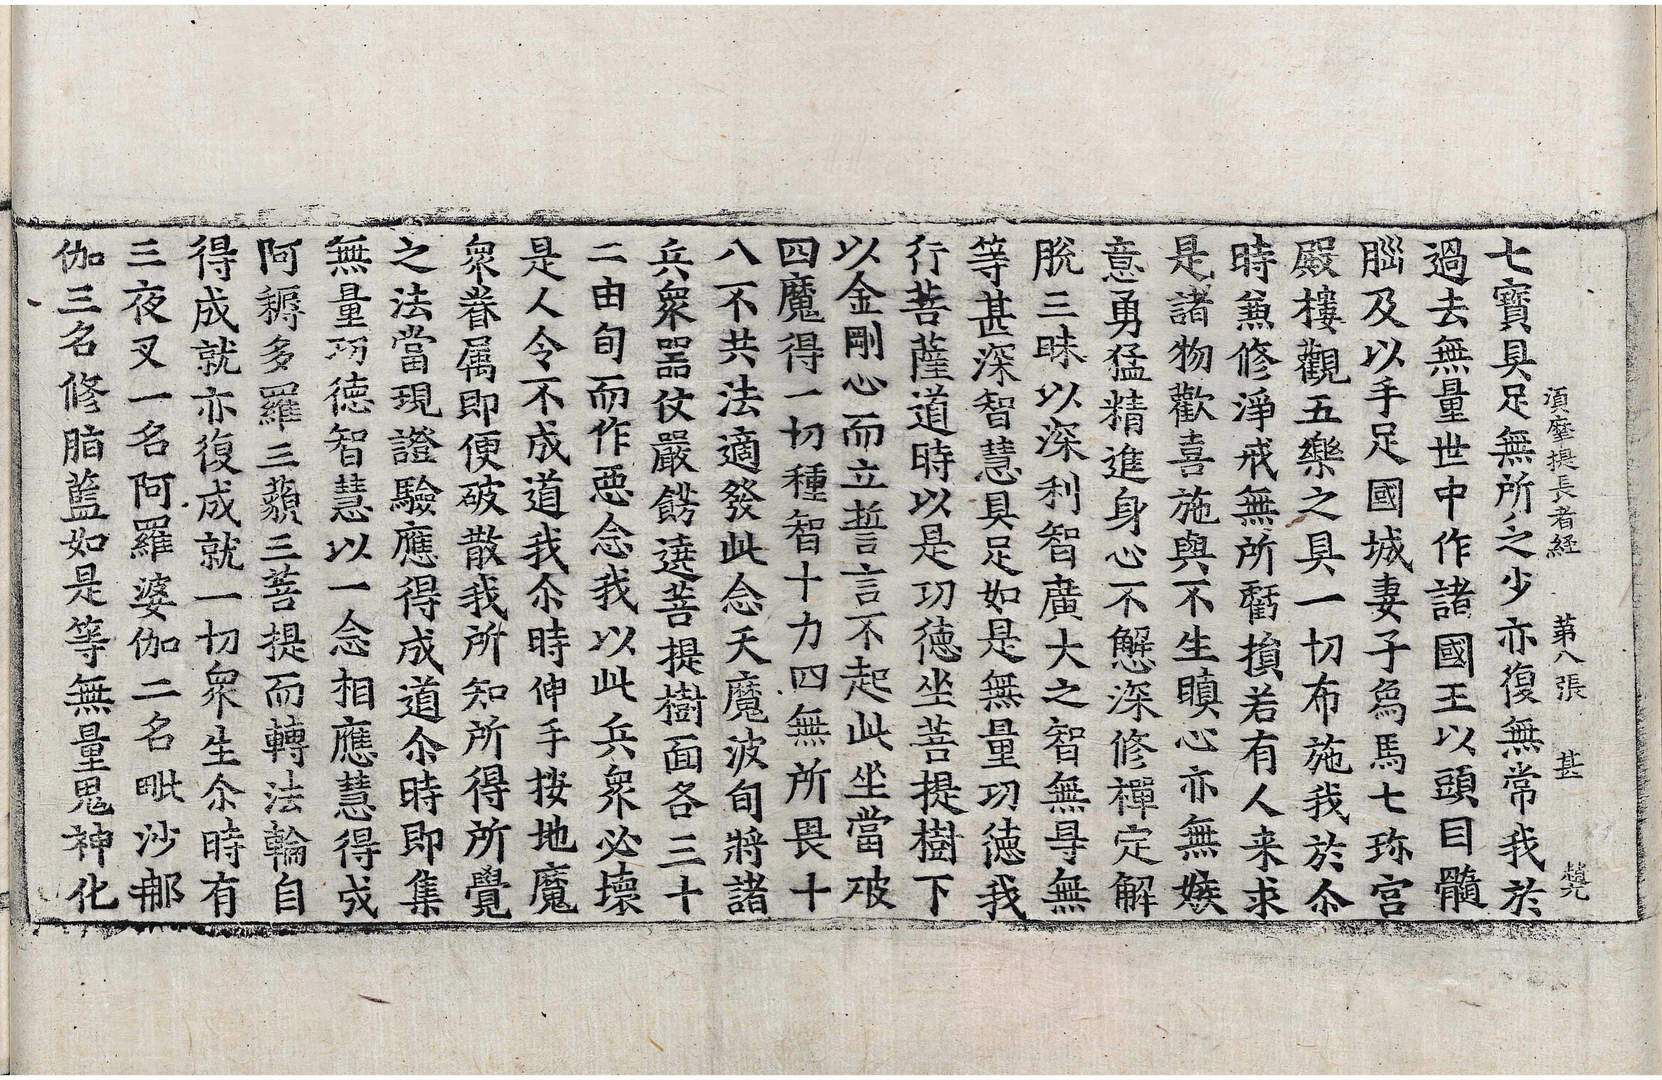 湏摩提長者経 第八張 甚 趙光
七寶具足無所乏少亦復無常我於
過去無量世中作諸國王以頭目髓
腦及以手足國城妻子象馬七珎宮
殿樓觀五樂之具一切布施我於尒
時兼修淨戒無所虧損若有人来求
是諸物歡喜施與不生瞋心亦無嫉
意勇猛精進身心不懈深修禪定解
脫三昧以深利智廣大之智無㝵無
等甚深智慧具足如是無量功德我
行菩薩道時以是功德坐菩提樹下
以金剛心而立誓言不起此坐當破
四魔得一切種智十力四無所畏十
八不共法適發此念天魔波旬將諸
兵衆器仗嚴餝遶菩提樹面各三十
二由旬而作惡念我以此兵衆必壞
是人令不成道我尒時伸手按地魔
衆眷属即便破散我所知所得所覺
之法當現證驗應得成道尒時即集
無量功德智慧以一念相應慧得成
阿耨多羅三藐三菩提而轉法輪自
得成就亦復成就一切衆生尒時有
三夜叉一名阿羅婆伽二名毗沙郍
伽三名修脂藍如是等無量鬼神化